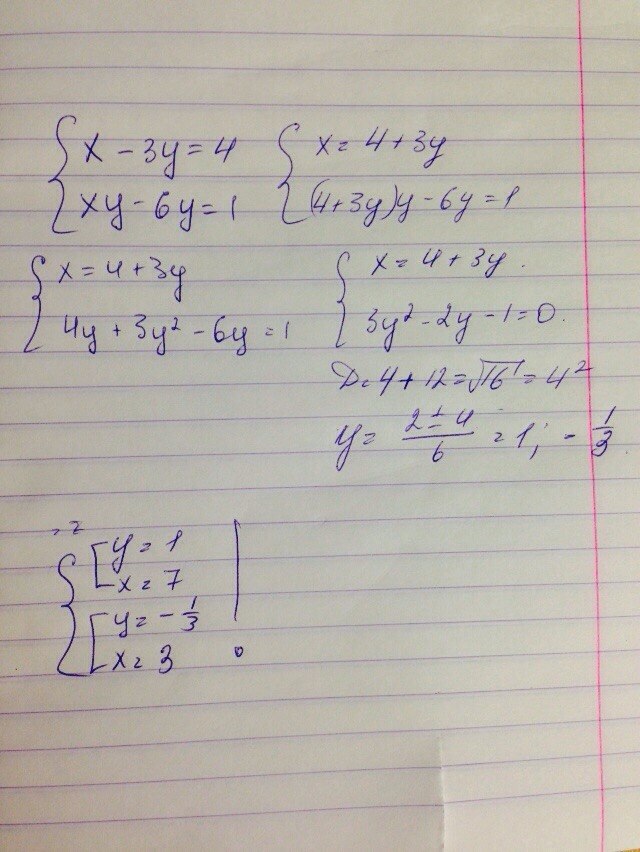 { x - 3y = 4
{ xy - 6y = 1
{ x = 4 + 3y
{ (4+3y)y - 6y = 1
{ x = 4 + 3y
{ 4y + 3y² - 6y = 1
{ x = 4 + 3y.
{ 3y² - 2y - 1 = 0.
D = 4 + 12 = √16 = 4²
y = (2 ± 4)/6 = 1; - 1/3
{ [ y = 1
[ x = 7
[ y = - 1/3
[ x = 3